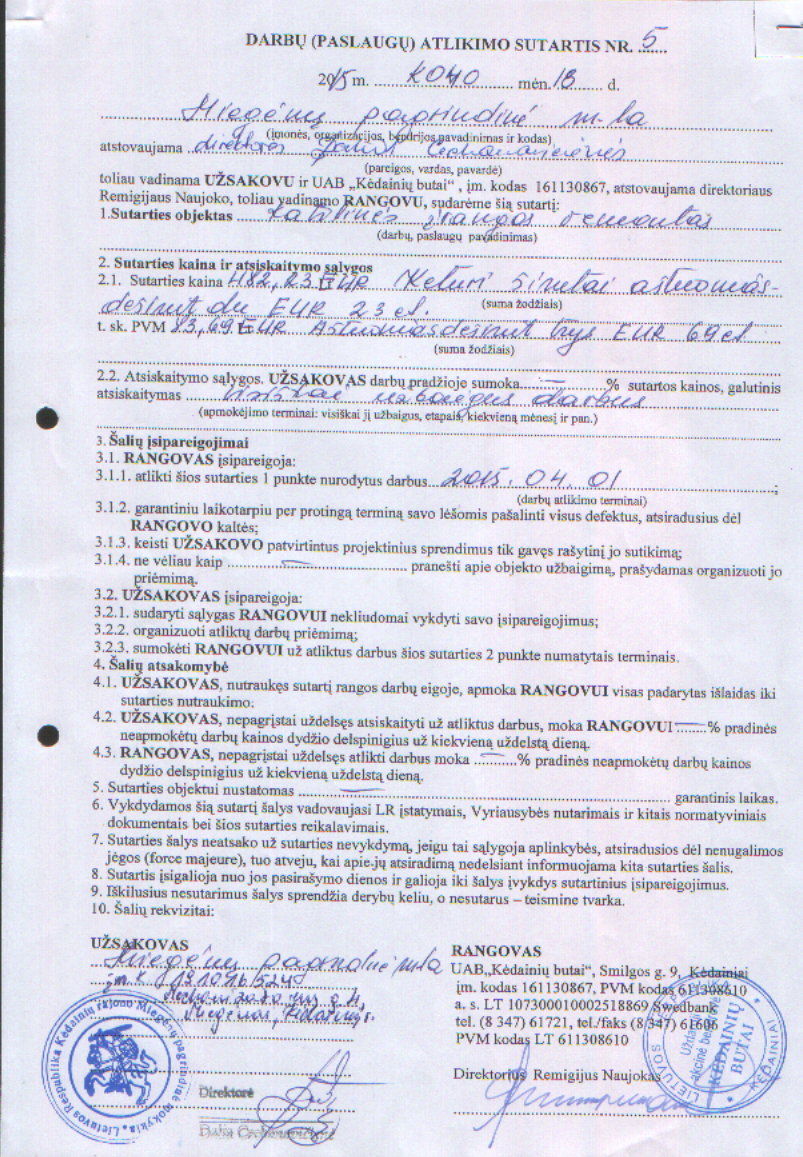 DARBŲ (PASLAUGŲ) ATLIKIMO SUTARTIS NR. 5
2015 m. KOVO mėn. 18 d.
Miegėnų pagrindinė m-la
(įmonės, organizacijos, bendrijos pavadinimas ir kodas)
atstovaujama direktorės
(pareigos, vardas, pavardė)
toliau vadinama UŽSAKOVU ir UAB „Kėdainių butai“ , įm. kodas 161130867, atstovaujama direktoriaus
Remigijaus Naujoko, toliau vadinamo RANGOVU, sudarėme šią sutartį:
1.Sutarties objektas Katilinės įrangos remontas
(darbų, paslaugų pavadinimas)
2. Sutarties kaina ir atsiskaitymo sąlygos
2.1. Sutarties kaina 482,23 EUR Keturi šimtai aštuonias-
dešimt du EUR 23 ct.
(suma žodžiais)
t. sk. PVM 83,69 EUR Aštuoniasdešimt trys EUR 69 ct
(suma žodžiais)
2.2. Atsiskaitymo sąlygos. UŽSAKOVAS darbų pradžioje sumoka — % sutartos kainos, galutinis
atsiskaitymas visiškai užbaigus darbus
(apmokėjimo terminai: visiškai jį užbaigus, etapais, kiekvieną mėnesį ir pan.)
3. Šalių įsipareigojimai
3.1. RANGOVAS įsipareigoja:
3.1.1. atlikti šios sutarties 1 punkte nurodytus darbus 2015. 04. 01 ;
(darbų atlikimo terminai)
3.1.2. garantiniu laikotarpiu per protingą terminą savo lėšomis pašalinti visus defektus, atsiradusius dėl
RANGOVO kaltės;
3.1.3. keisti UŽSAKOVO patvirtintus projektinius sprendimus tik gavęs raštytinį jo sutikimą;
3.1.4. ne vėliau kaip — pranešti apie objekto užbaigimą, prašydamas organizuoti jo
priėmimą.
3.2. UŽSAKOVAS įsipareigoja:
3.2.1. sudaryti sąlygas RANGOVUI nekliudomai vykdyti savo įsipareigojimus;
3.2.2. organizuoti atliktų darbų priėmimą;
3.2.3. sumokėti RANGOVUI už atliktus darbus šios sutarties 2 punkte numatytais terminais.
4. Šalių atsakomybė
4.1. UŽSAKOVAS, nutraukęs sutartį rangos darbų eigoje, apmoka RANGOVUI visas padarytas išlaidas iki
sutarties nutraukimo;
4.2. UŽSAKOVAS, nepagrįstai uždelsęs atsiskaityti už atliktus darbus, moka RANGOVUI — % pradinės
neapmokėtų darbų kainos dydžio delspinigius už kiekvieną uždelstą dieną.
4.3. RANGOVAS, nepagrįstai uždelsęs atlikti darbus moka — % pradinės neapmokėtų darbų kainos
dydžio delspinigius už kiekvieną uždelstą dieną.
5. Sutarties objektui nustatomas — garantinis laikas.
6. Vykdydamos šią sutartį šalys vadovaujasi LR įstatymais, Vyriausybės nutarimais ir kitais normatyviniais
dokumentais bei šios sutarties reikalavimais.
7. Sutarties šalys neatsako už sutarties nevykdymą, jeigu tai sąlygoja aplinkybės, atsiradusios dėl nenugalimos
jėgos (force majeure), tuo atveju, kai apie jų atsiradimą nedelsiant informuojama kita sutarties šalis.
8. Sutartis įsigalioja nuo jos pasirašymo dienos ir galioja iki šalys įvykdys sutartinius įsipareigojimus.
9. Iškilusius nesutarimus šalys sprendžia derybų keliu, o nesutarus – teismine tvarka.
10. Šalių rekvizitai:
UŽSAKOVAS
Miegėnų pagrindinė m-la
Miegėnai, Kėdainių r.
Direktorė
Lietuvos Respublika Kėdainių rajono Miegėnų pagrindinė mokykla
RANGOVAS
UAB„Kėdainių butai“, Smilgos g. 9, Kėdainiai
įm. kodas 161130867, PVM kodas 611308610
a. s. LT 107300010002518869 Swedbank
tel. (8 347) 61721, tel./faks (8 347) 61606
PVM kodas LT 611308610
Direktorius Remigijus Naujokas
KĖDAINIŲ
BUTAI